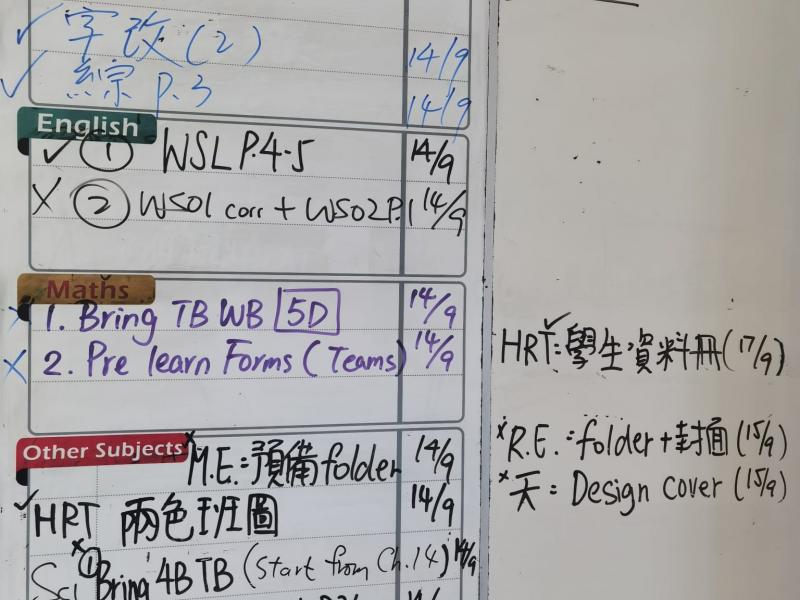 ✓ 字改(2) 14/9
✓ 綜 P.3 14/9
English
✓ ① WSL P.4-5 14/9
X ② WS01 corr + WS02 P.1 14/9
Maths
x 1. Bring TB WB 5D 14/9
x 2. Pre learn Forms (Teams) 14/9
Other Subjects
x M.E.: 預備folder 14/9
✓ HRT 兩色班圖 14/9
Sci x ① Bring 4B TB (Start from Ch.14) 14/9
✓ HRT: 學生資料冊(17/9)
x R.E.: folder+封面(15/9)
x 天: Design cover (15/9)